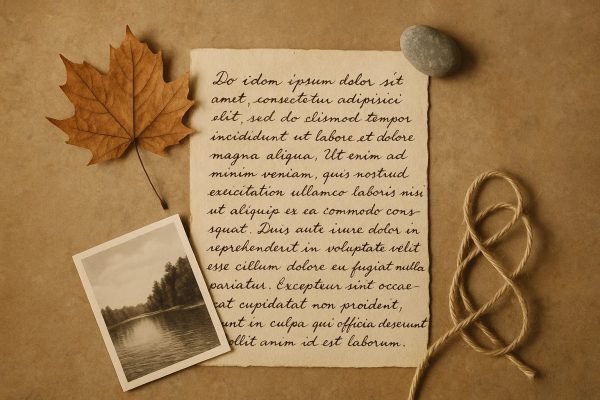 Do idom ipsum dolor sit
amet, consectetur adipisici
elit, sed do clismod tempor
incididunt ut labore et dolore
magna aliqua, Ut enim ad
minim veniam, quis nostrud
exucitation ullamco laboris nisi
ut aliquip ex ea commodo cons-
squat. Duis aute irure dolor in
reprehenderit in voluptate velit
esse cillum dolore eu fugiat nulla
pariatur. Excepteur sint occae-
cat cupidatat non proident,
unt in culpa qui officia deserunt
ollit anim id est laborum.